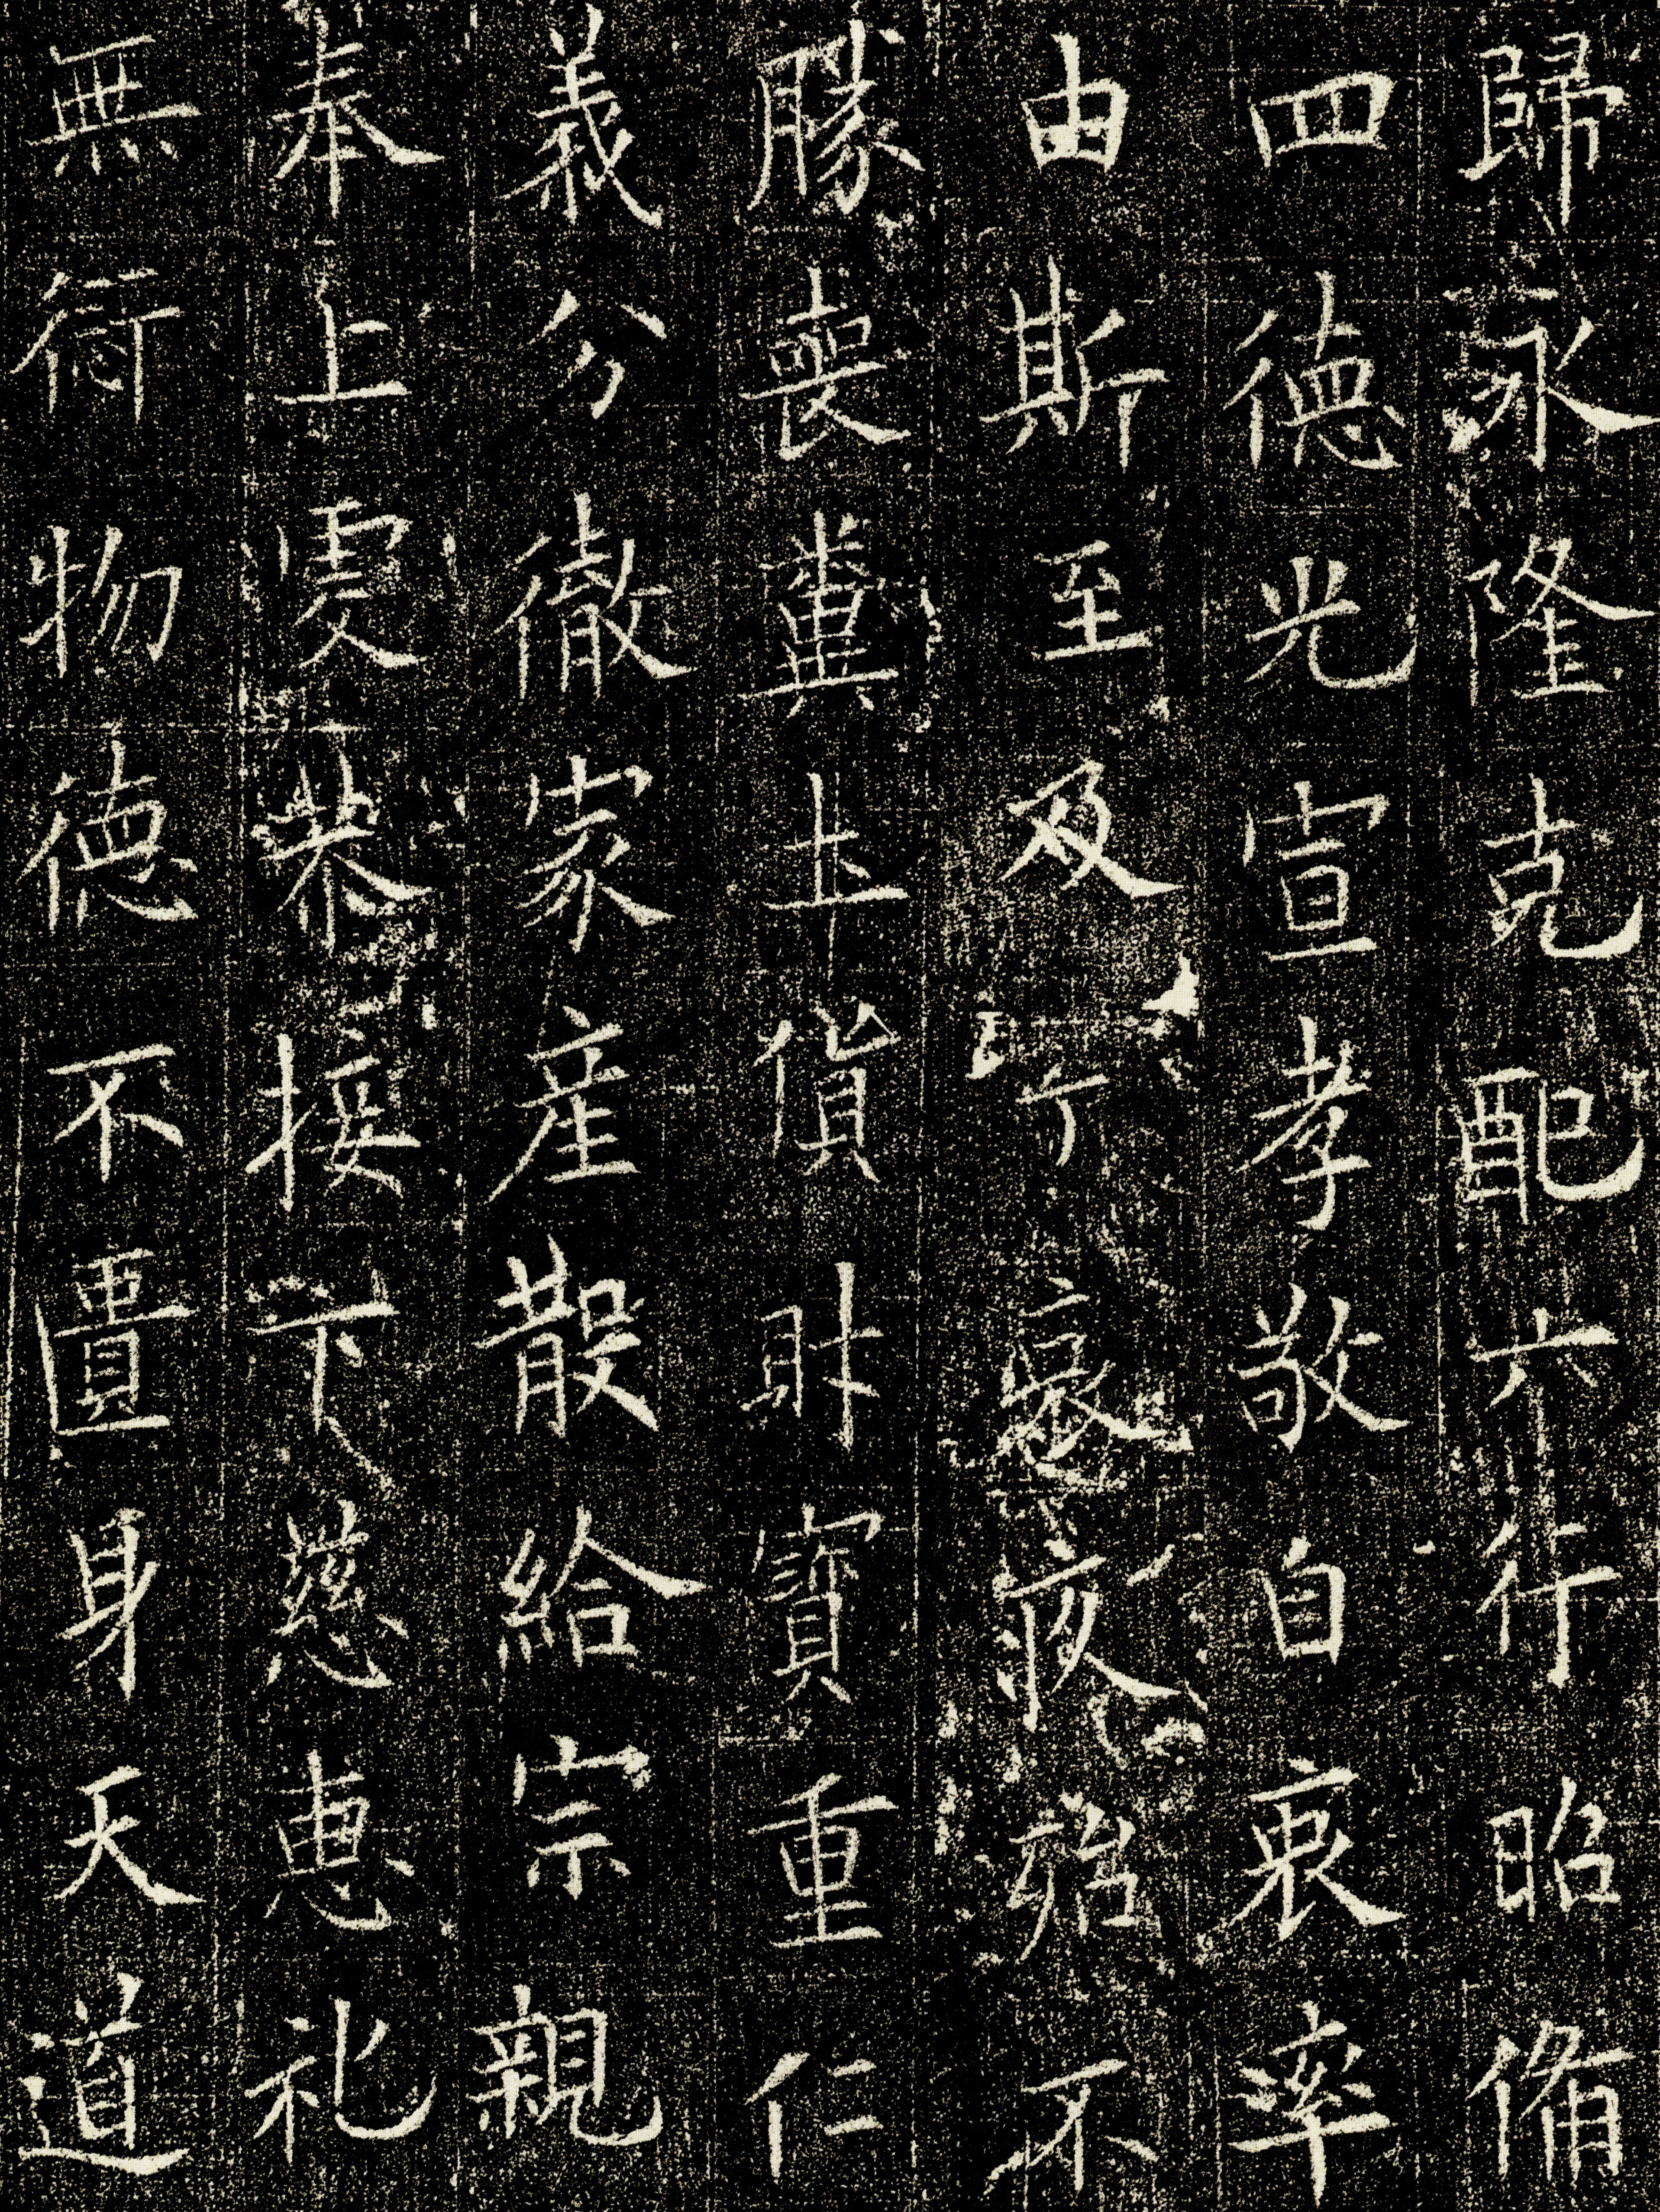 歸永隆克配六行昭偹
四德光宣孝敬自衷率
由斯至及丁哀疚殆不
勝喪糞土貨財寶重仁
義分徹家產散給宗親
奉上虔恭接下慈恵礼
無愆物德不匱身天道